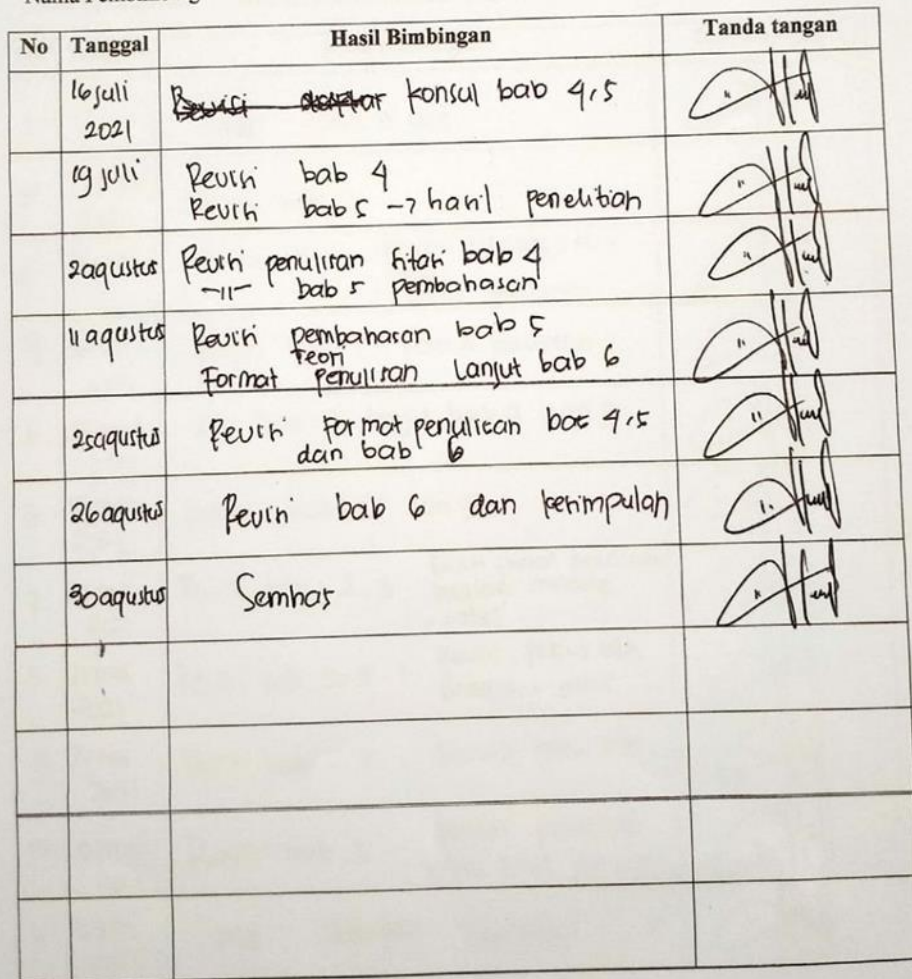 No Tanggal Hasil Bimbingan Tanda tangan
16 juli
2021
konsul bab 4,5
19 juli
Revisi bab 4
Revisi bab 5 -> hasil penelitian
2 agustus
Revisi penulisan sitasi bab 4
-11- bab 5 pembahasan
11 agustus
Revisi pembahasan bab 5
Teori
Format penulisan Lanjut bab 6
25 agustus
Revisi Format penulisan bab 4,5
dan bab 6
26 agustus
Revisi bab 6 dan kesimpulan
30 agustus
Semhas